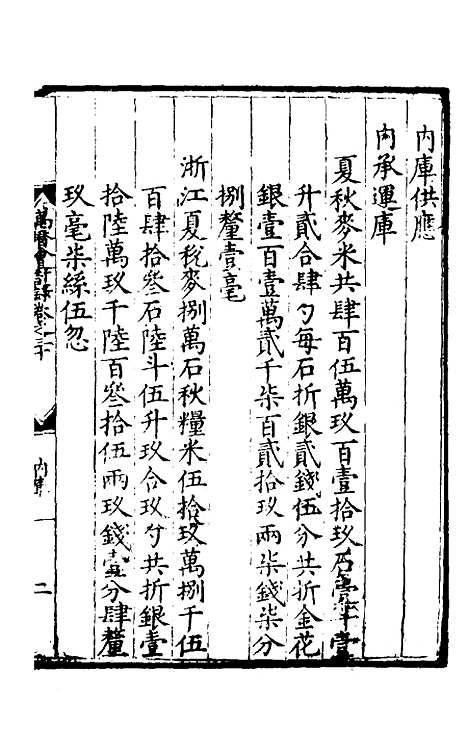 內庫供應
內承運庫
夏秋麥米共肆百伍萬玖百壹拾玖石壹斗壹
升貳合肆勺每石折銀貳錢伍分共折金花
銀壹百壹萬貳千柒百貳拾玖兩柒錢柒分
捌釐壹毫
浙江夏稅麥捌萬石秋糧米伍拾玖萬捌千伍
百肆拾叄石陸斗伍升玖合玖勺共折銀壹
拾陸萬玖千陸百叄拾伍兩玖錢壹分肆釐
玖毫柒絲伍忽
萬曆會計錄卷之三十
內庫
二